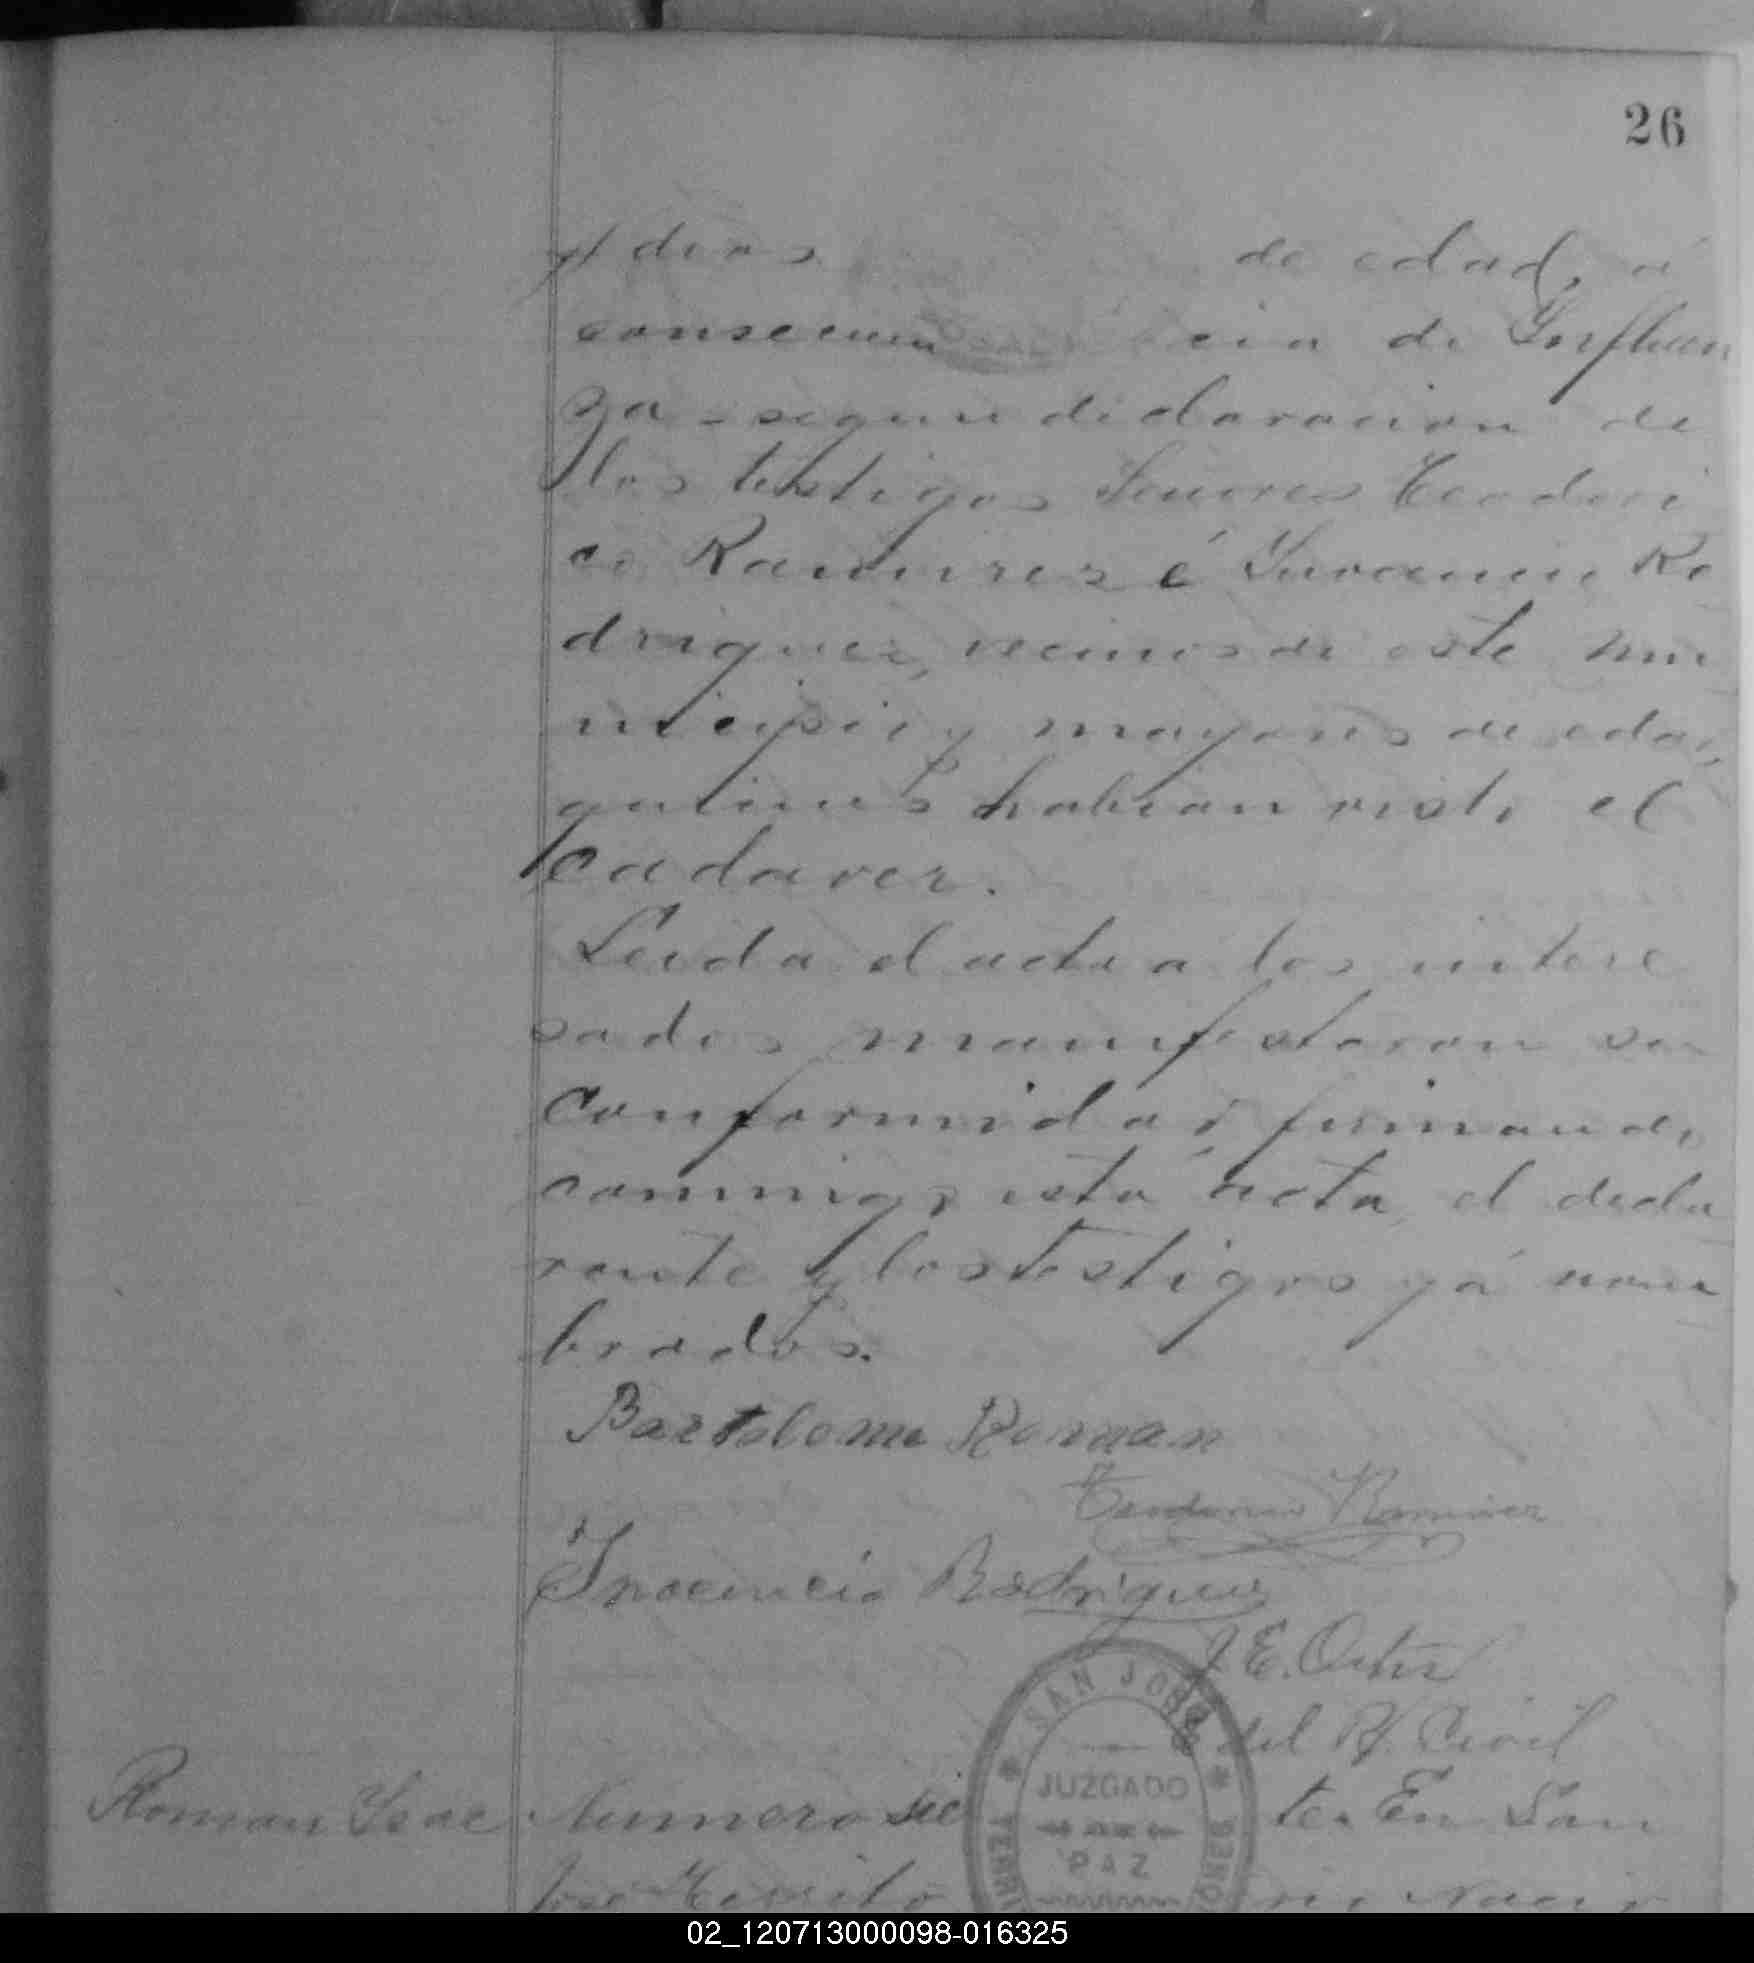 26
y dias de edad, á
consecuen cia de Influen
za - segun declaracion de
los testigos Senores Teodori
co Ramirez é Inocencio Ro
driguez, vecinos de este mu
nicipio y mayores de edad,
quienes habian visto el
cadaver.
Leida el acta a los intere
sados manifestaron su
conformidad, firmando
conmigo esta acta, el decla
rante y los testigos yá nom
brados.
Bartolome Roman
Teodorico Ramirez
Inocencio Rodriguez
J. E. Ortiz
E del R. Civil
SAN JOSE
JUZGADO
DE
PAZ
Roman Isac Numero sie te. En San
José Territo rio Nacio
02_120713000098-016325